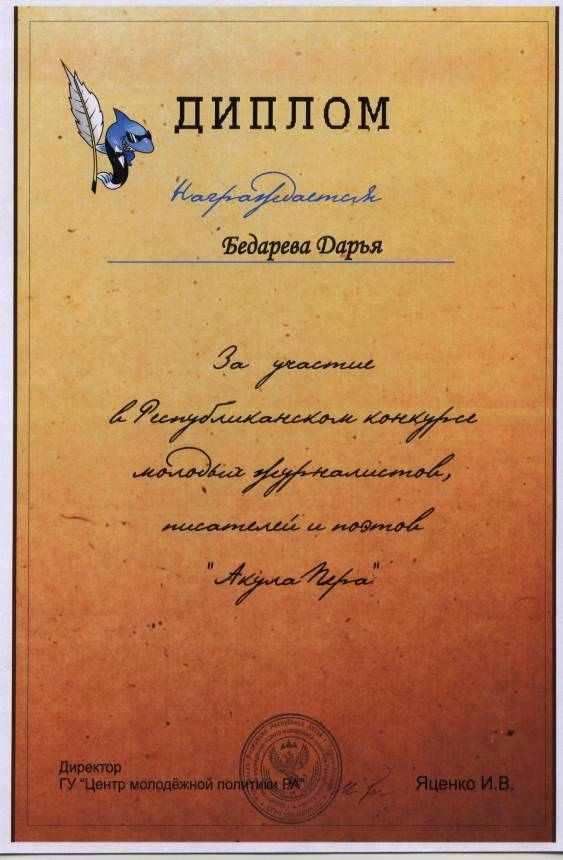 ДИПЛОМ
Награждается
Бедарева Дарья
За участие
в Республиканском конкурсе
молодых журналистов,
писателей и поэтов
"Акула Пера"
Директор
ГУ "Центр молодёжной политики РА"
Яценко И.В.